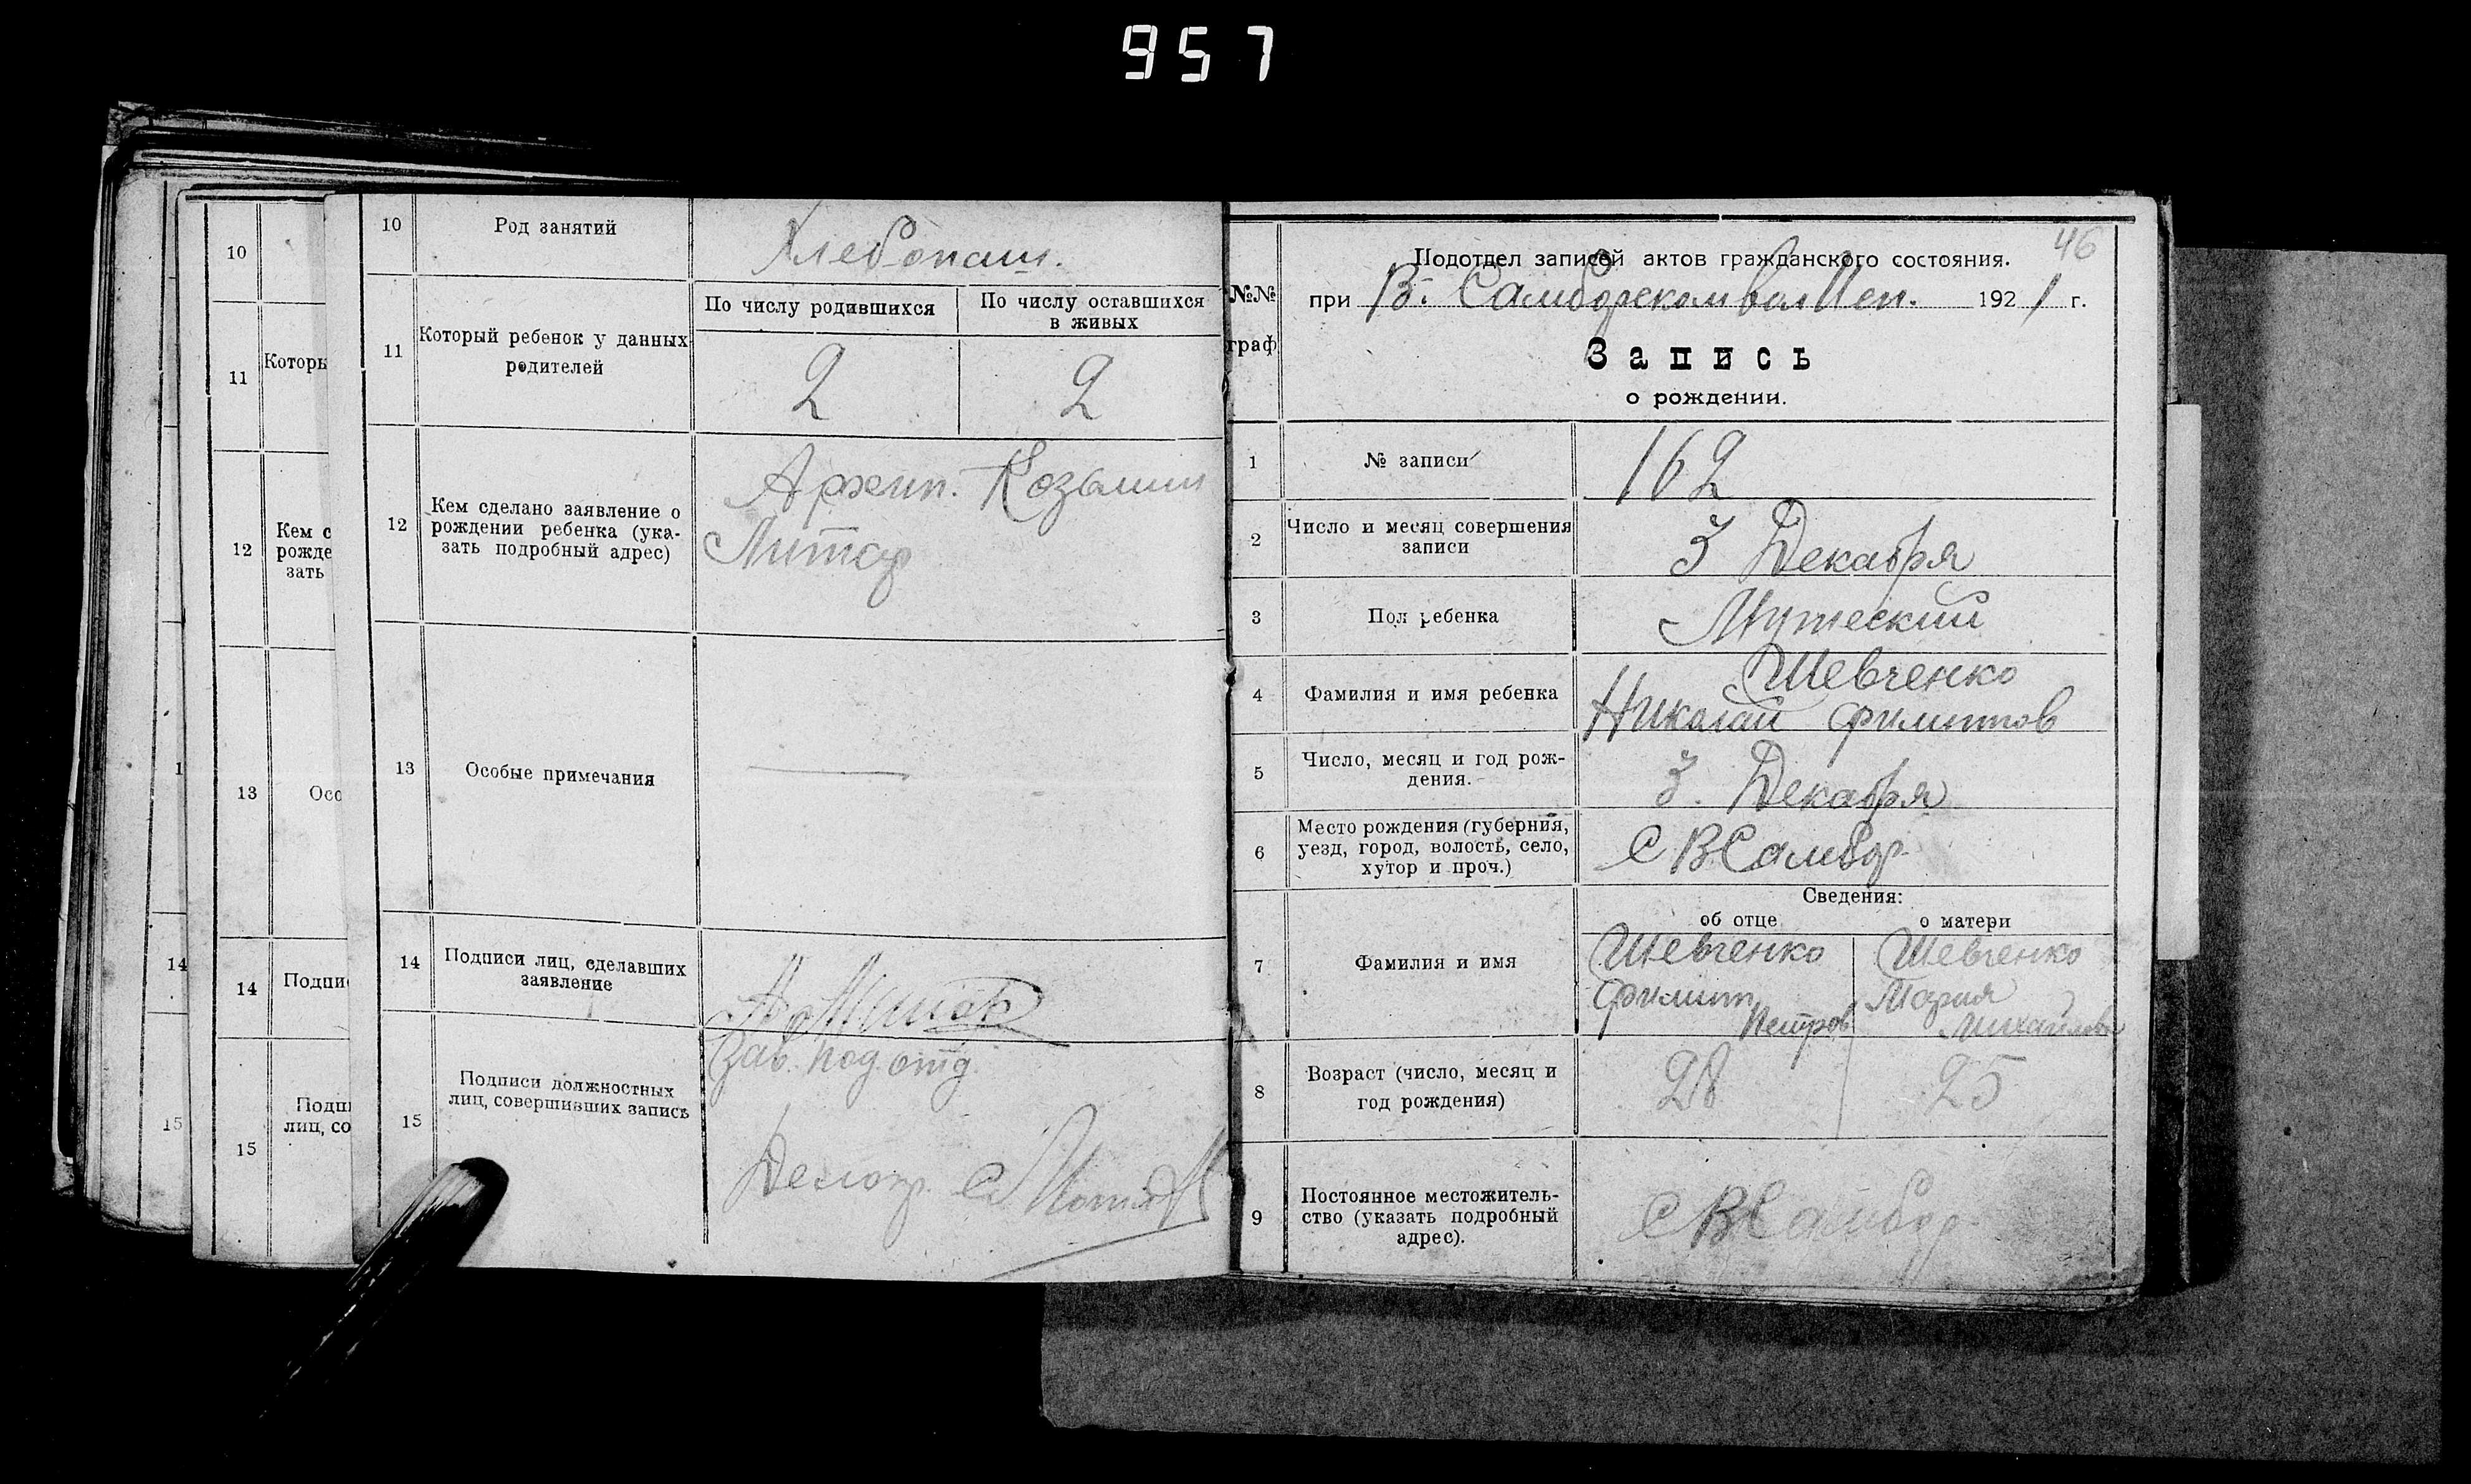 957
10
11
Которы
12
Кем с
рожде
зать
1
13
Осо
14
14
Подпи
15
Подп
лиц, со
15
10
Род занятий
Хлебопаш.
11
Который ребенок у данных
родителей
По числу родившихся
По числу оставшихся
в живых
2
2
12
Кем сделано заявление о
рождении ребенка (ука-
зать подробный адрес)
Архип. Козьмин
13
Особые примечания
14
Подписи лиц, сделавших
заявление
15
Подписи должностных
лиц, совершивших запись
Зав. под отд.
Делопр.
46
№№
граф
Подотдел записей актов гражданского состояния.
при В. Самборском вол Исп. 1921 г.
Запись
о рождении.
1
№ записи
162
2
Число и месяц совершения
записи
3 Декабря
3
Пол ребенка
Мужеский
4
Фамилия и имя ребенка
Шевченко
Николай Филиппов
5
Число, месяц и год рож-
дения.
3. Декабря
6
Место рождения (губерния,
уезд, город, волость, село,
хутор и проч.)
С В Самбор
Сведения:
об отце
о матери
7
Фамилия и имя
Шевченко
Филипп
Петров
Шевченко
Мария
Михайлова
8
Возраст (число, месяц и
год рождения)
28
25
9
Постоянное местожитель-
ство (указать подробный
адрес).
С В Самбор.